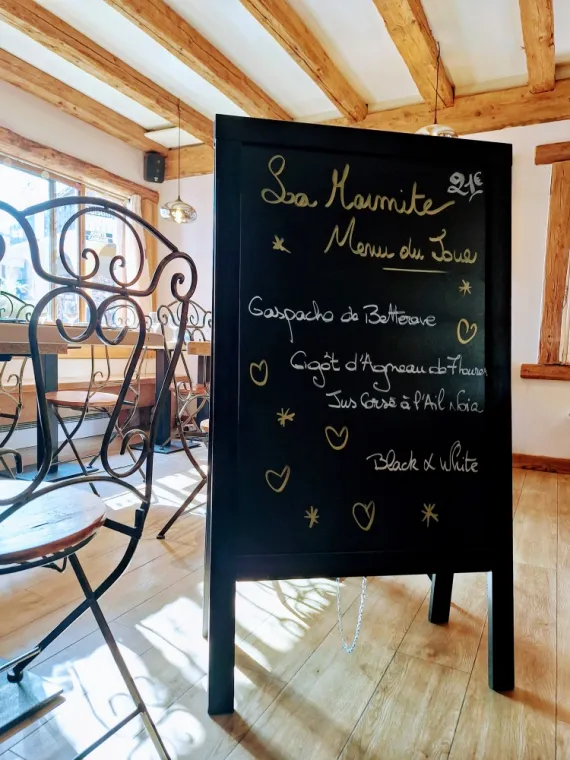 La Marmite 21€
Menu du Jour
Gaspacho de Betterave
Gigôt d'Agneau de 7 heures
Jus Corsé à l'Ail Noir
Black & White